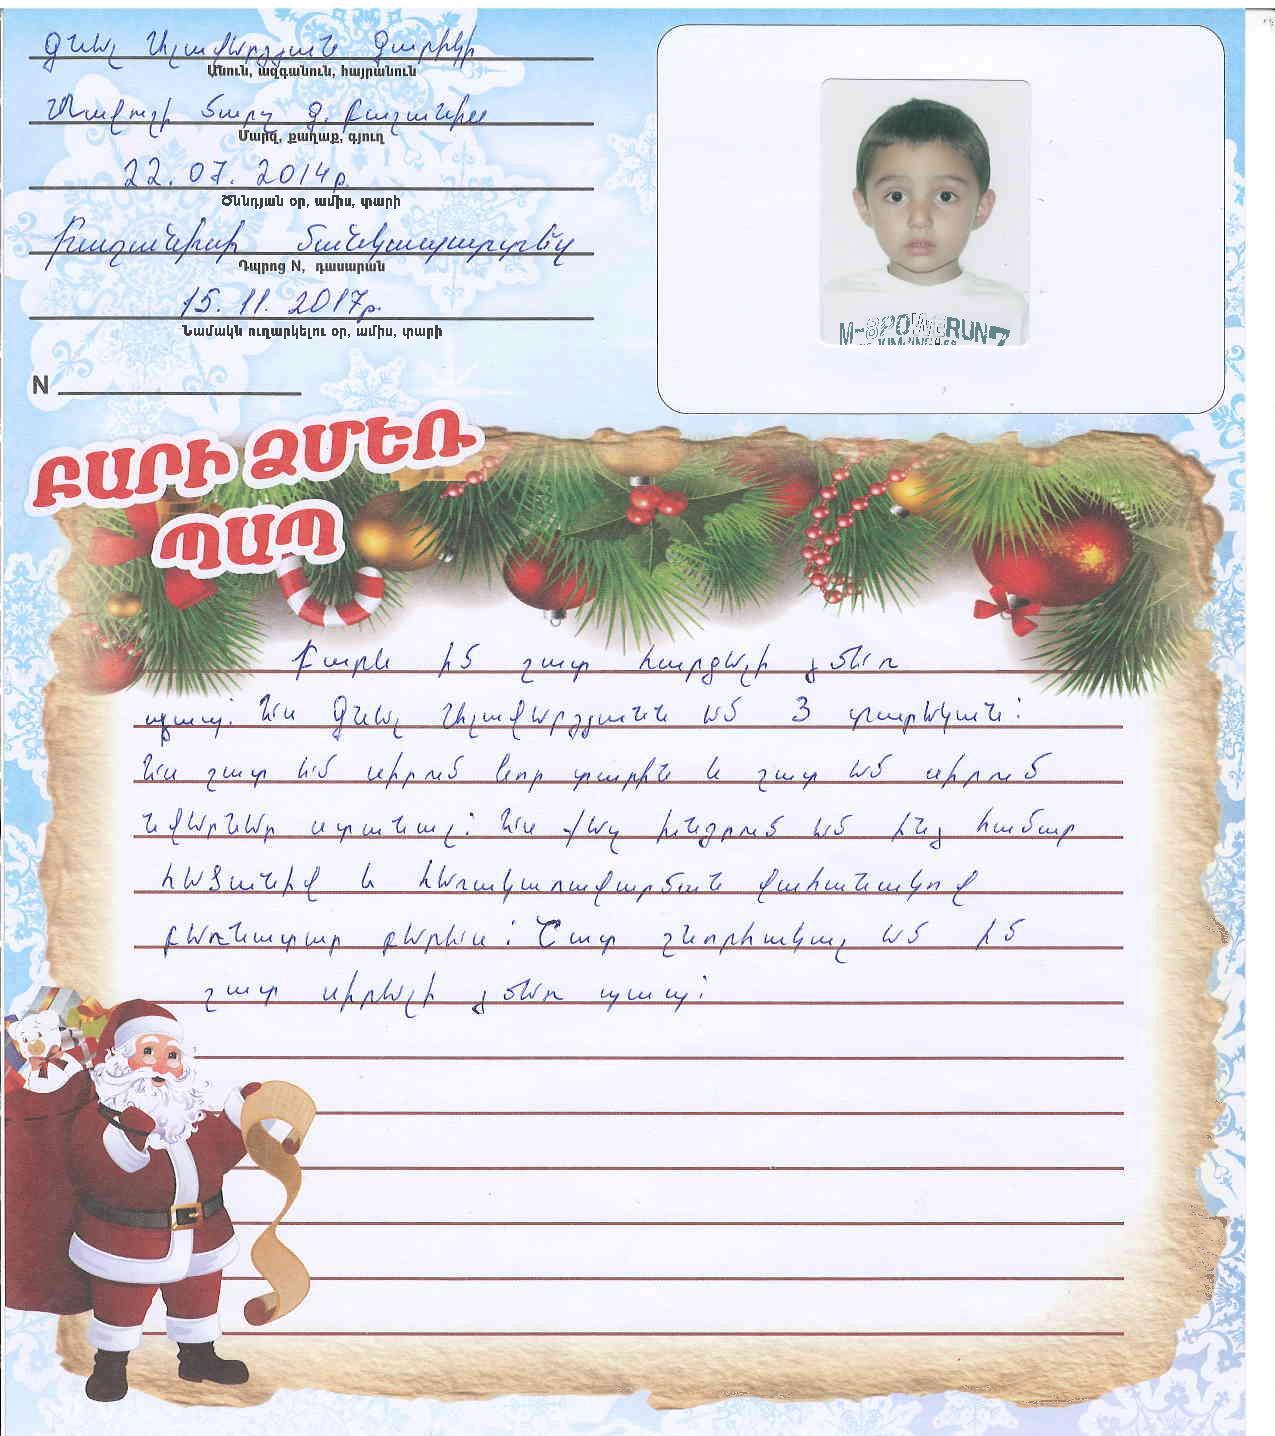 Գնել Ալավերդյան Գարիկի
Անուն, ազգանուն, հայրանուն
Տավուշի մարզ գ. Բագանիս
Մարզ, քաղաք, գյուղ
22.07.2014թ.
Ծննդյան օր, ամիս, տարի
Բաղանիսի մանկապարտեզ
Դպրոց N, դասարան
15.11.2017թ.
Նամակն ուղարկելու օր, ամիս, տարի
N
M-8POWERUN7
ԲԱՐԻ ՁՄԵՌ
ՊԱՊ
Բարև իմ շատ հարգելի ձմեռ
պապ: Ես Գնել Ալավերդյանն եմ 3 տարեկան:
Ես շատ եմ սիրում նոր տարին և շատ եմ սիրում
նվերներ ստանալ: Ես քեզ խնդրում եմ ինձ համար
հեծանիվ և հեռակառավարման վահանակով
բեռնատար բերես: Շատ շնորհակալ եմ իմ
շատ սիրելի ձմեռ պապ: